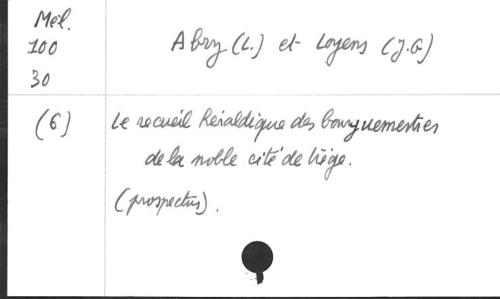 Mél.
100
30
Abry (L.) et Loyens (J.G)
(6)
Le recueil héraldique des bourguemestres
de la noble cité de Liège.
(prospectus).